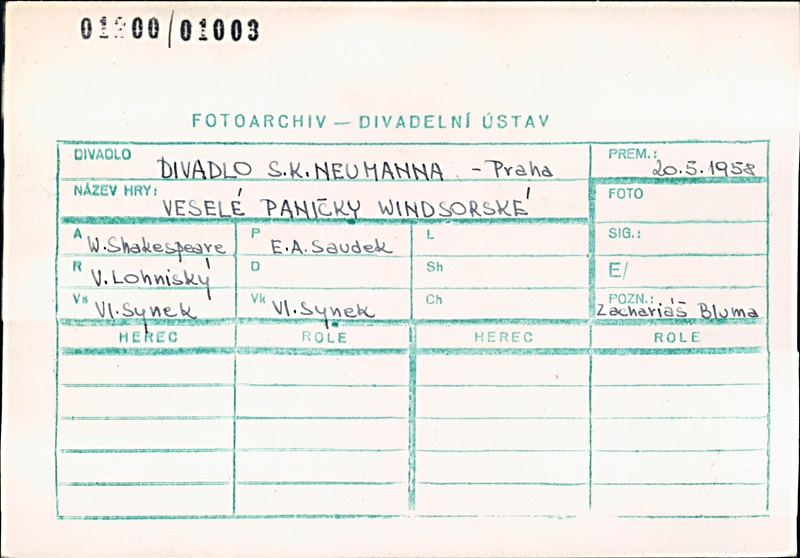 01200/01003
FOTOARCHIV — DIVADELNÍ ÚSTAV
DIVADLO DIVADLO S.K. NEUMANNA - Praha PREM.: 20.5.1958
NÁZEV HRY: VESELÉ PANIČKY WINDSORSKÉ FOTO
A W. Shakespeare P E.A. Saudek L SIG.:
R V. Lohniský D Sh E/
Vs Vl. Synek Vk Vl. Synek Ch POZN.: Zachariáš Bluma
HEREC ROLE HEREC ROLE